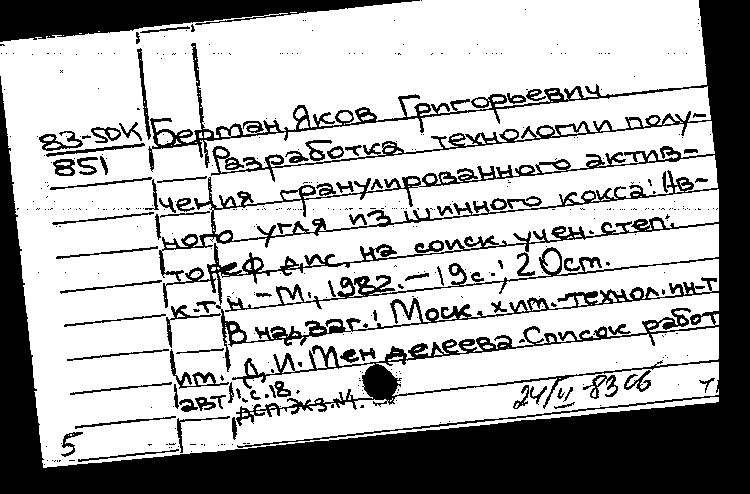 83-5ДК
851
Берман, Яков Григорьевич.
Разработка технологии полу-
чения гранулированного актив-
ного угля из шинного кокса: Ав-
тореф. дис. на соиск. учен. степ.
к.т.н. - М., 1982. - 19с.; 20см.
В надзаг.: Моск. хим.-технол. ин-т
им. Д.И. Менделеева. Список работ
авт.: с. 18.
ДСП Экз. №1.
24/VI-83 Сб
5